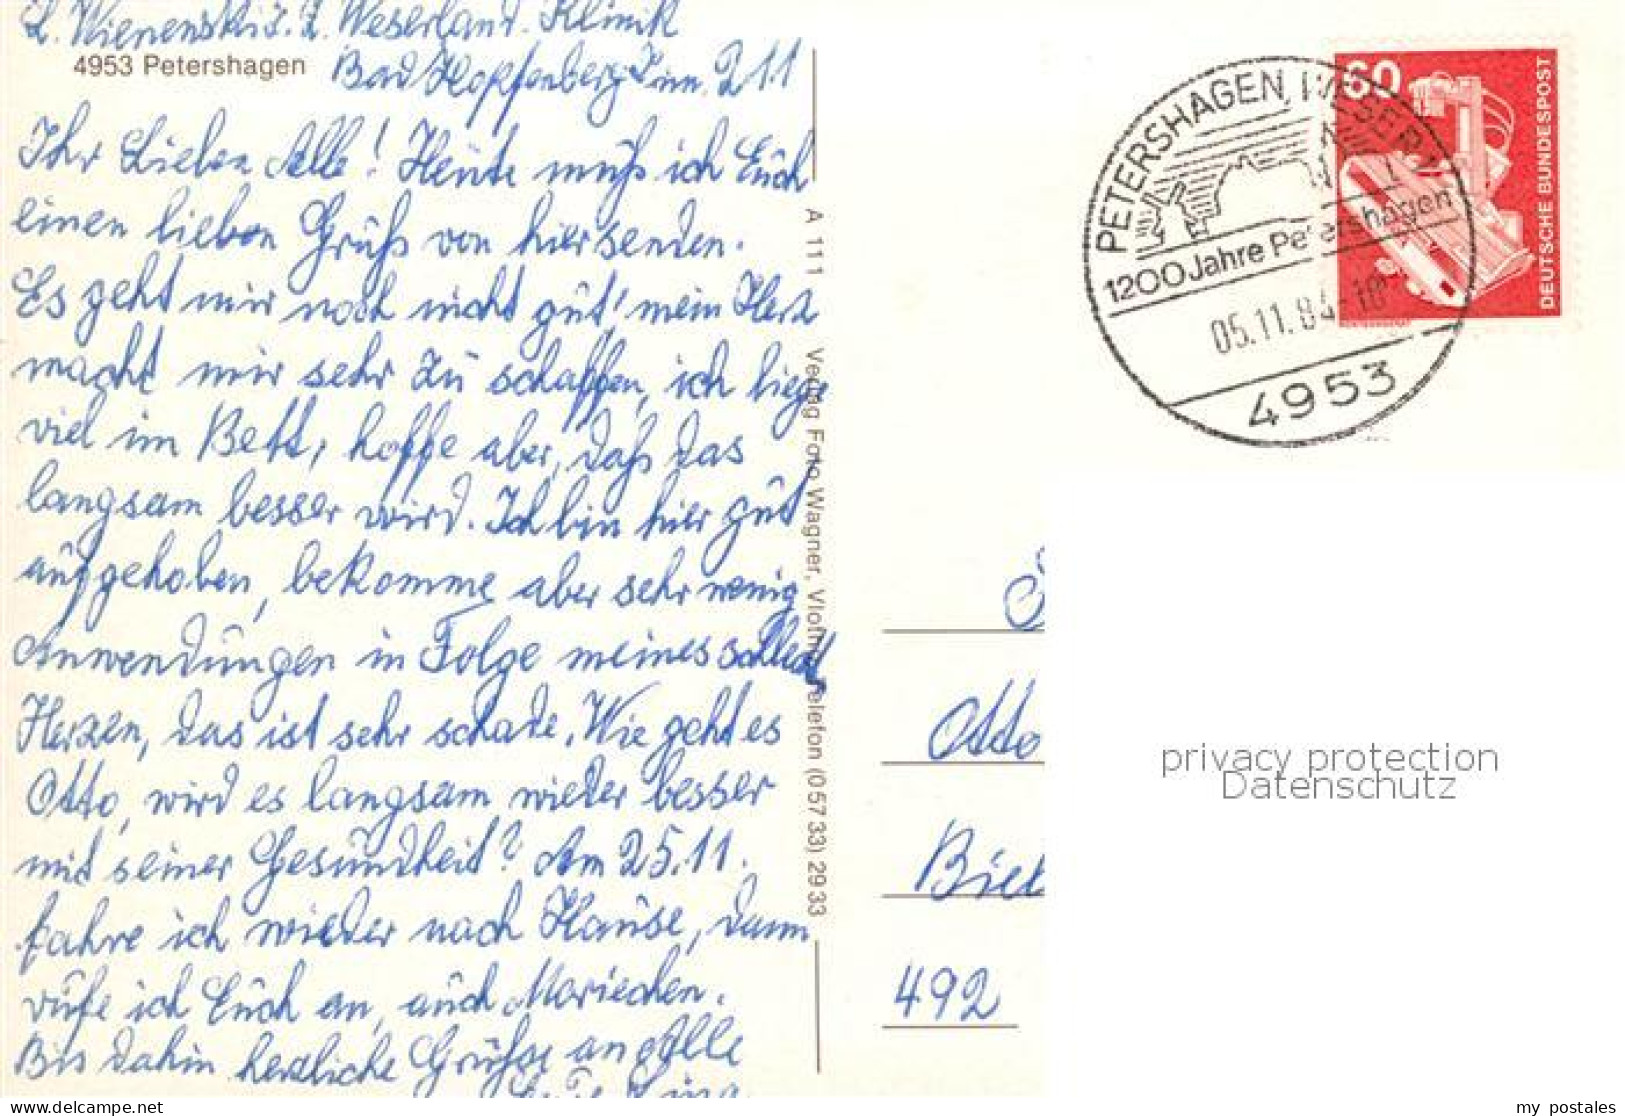 L. Wienenski z. Z. Weserland-Klinik
4953 Petershagen
Bad Hopfenberg, den 2.11
Ihr Lieben Alle! Heute muß ich Euch
einen lieben Gruß von hier senden.
Es geht mir noch nicht gut, mein Herz
macht mir sehr zu schaffen, ich liege
viel im Bett, hoffe aber, daß das
langsam besser wird. Ich bin hier gut
aufgehoben, bekomme aber sehr wenig
Anwendungen in Folge meines schlecht
Herzen, das ist sehr schade. Wie geht es
Otto, wird es langsam wieder besser
mit seiner Gesundheit? Am 25.11.
fahre ich wieder nach Hause, dann
rufe ich Euch an, auch Mariechen.
Bis dahin herzliche Grüße an Alle
A 111 Verlag Foto Wagner, Vlotho, Telefon (0 57 33) 29 33
PETERSHAGEN, WESER 1
1200 Jahre Petershagen
05.11.84-18
4953
60
DEUTSCHE BUNDESPOST
Otto
Biel
492
privacy protection
Datenschutz
my_postales